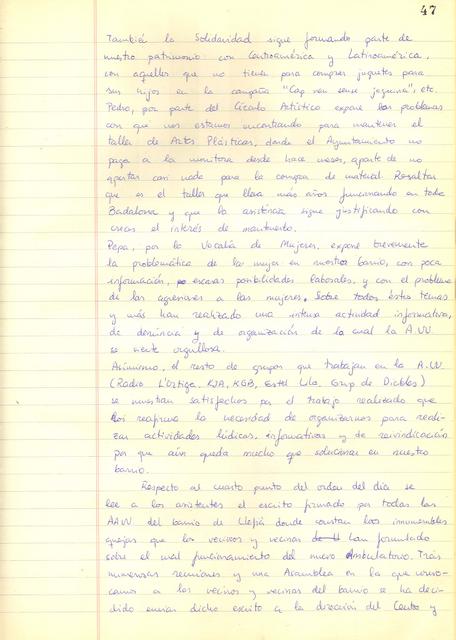 47
También la Solidaridad sigue formando parte de
nuestro patrimonio: con Centroamérica y Latinoamérica,
con aquellos que no tienen para comprar juguetes para
sus hijos en la campaña "Cap nen sense joguina", etc.
Pedro, por parte del Círculo Artístico expone los problemas
con que nos estamos encontrando para mantener el
taller de Artes Plásticas, donde el Ayuntamiento no
paga a la monitora desde hace meses, aparte de no
aportar casi nada para la compra de material. Resaltar
que es el taller que lleva más años funcionando en toda
Badalona y que la asistencia sigue justificando con
creces el interés de mantenerlo.
Pepa, por la Vocalía de Mujeres, expone brevemente
la problemática de la mujer en nuestro barrio, con poca
información, escasas posibilidades laborales, y con el problema
de las agresiones a las mujeres. Sobre todos estos temas
y más han realizado una intensa actividad informativa,
de denuncia y de organización de la cual la A.VV
se siente orgullosa.
Asimismo, el resto de grupos que trabajan en la A.VV
(Radio L'Ortiga, KJA, KGB, Estel Lila, Grup de Diables)
se muestran satisfechos por el trabajo realizado que
reafirma la necesidad de organizarnos para reali-
zar actividades lúdicas, informativas y de reivindicación
por que aún queda mucho que solucionar en nuestro
barrio.
Respecto al cuarto punto del orden del día se
lee a los asistentes el escrito firmado por todas las
AAVV del barrio de Llefià donde constan las innumerables
quejas que los vecinos y vecinas han formulado
sobre el mal funcionamiento del nuevo Ambulatorio. Tras
numerosas reuniones y una Asamblea en la que convo-
camos a los vecinos y vecinas del barrio se ha deci-
dido enviar dicho escrito a la dirección del Centro y